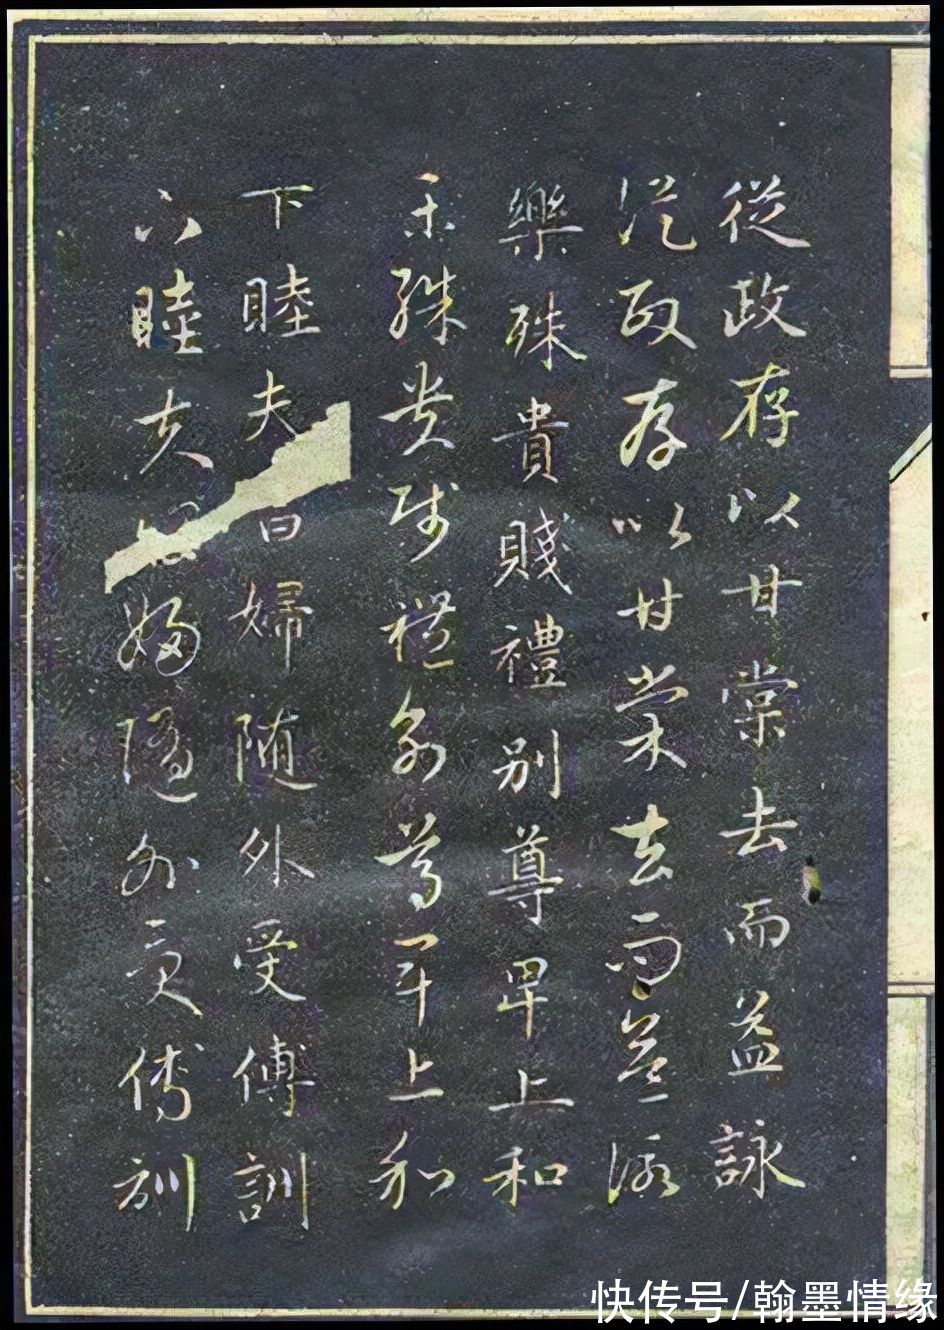 從政存以甘棠去而益詠
從政存以甘棠去而益詠
樂殊貴賤禮別尊卑上和
樂殊貴賤禮別尊卑上和
下睦夫婦随外受傅訓
下睦夫婦随外受傅訓
快传号/翰墨情缘